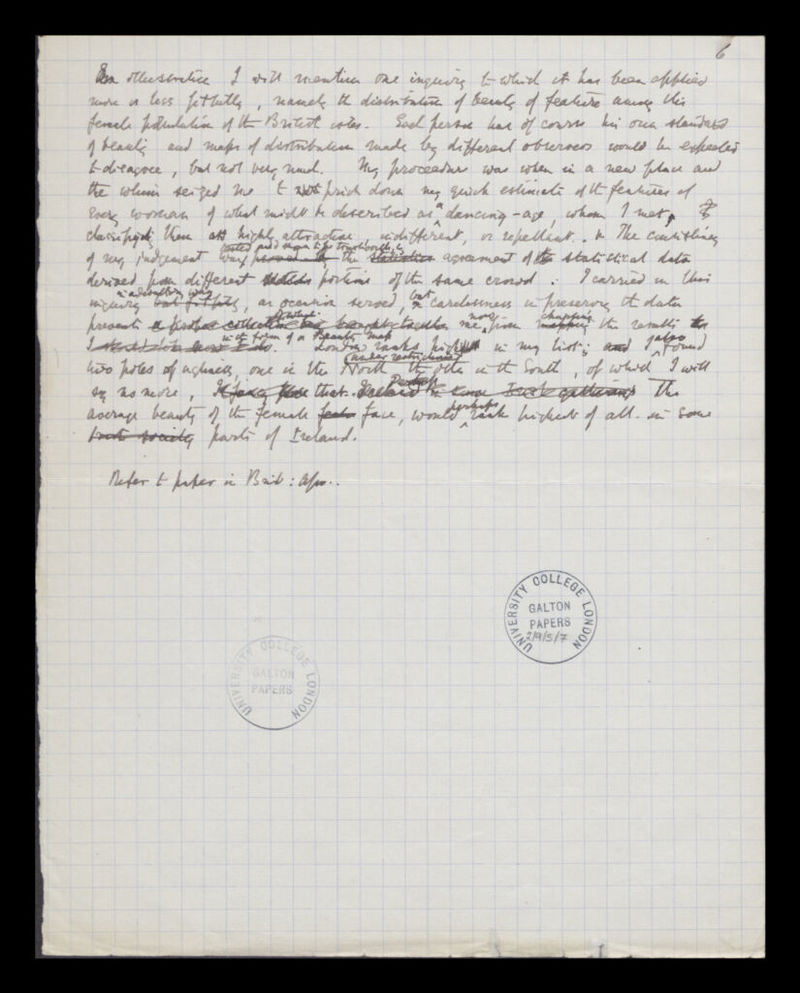 6
illustration I will mention one inquiry to which it has been applied
more or less fitfully, namely the distribution of beauty of feature among the
female population of the British isles. Each person has of course his own standard
of beauty and maps of distribution made by different observers would be expected
to disagree, but not very much. My procedure was when in a new place and
the whim seized me to prick down my quick estimate of the features of
every woman of what might be described as a dancing-age, whom I met,
classifying them as highly attractive, indifferent, or repellant. The consistency
tested and shown to be trustworthy by
of my judgement was the statistical agreement of the statistical data
derived from different portions of the same crowd. I carried on this
inquiry but fitfully, as occasion served, but carelessness in preserving the data
prevents me now from mapping the results
in the form of a Beauty map
London ranks highest in my list; and I also found
two poles of ugliness, one in the North the other in the South, of which I will
say no more, that The
average beauty of the female face, would perhaps rank highest of all in some
society parts of Ireland.
Refer to paper in Brit: Ass..
UNIVERSITY COLLEGE LONDON
GALTON
PAPERS
2/9/5/7
UNIVERSITY COLLEGE LONDON
GALTON
PAPERS